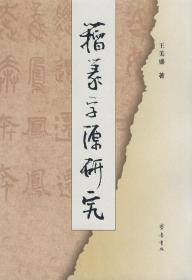 籀篆字源研究
王美盛 著
齊魯書社